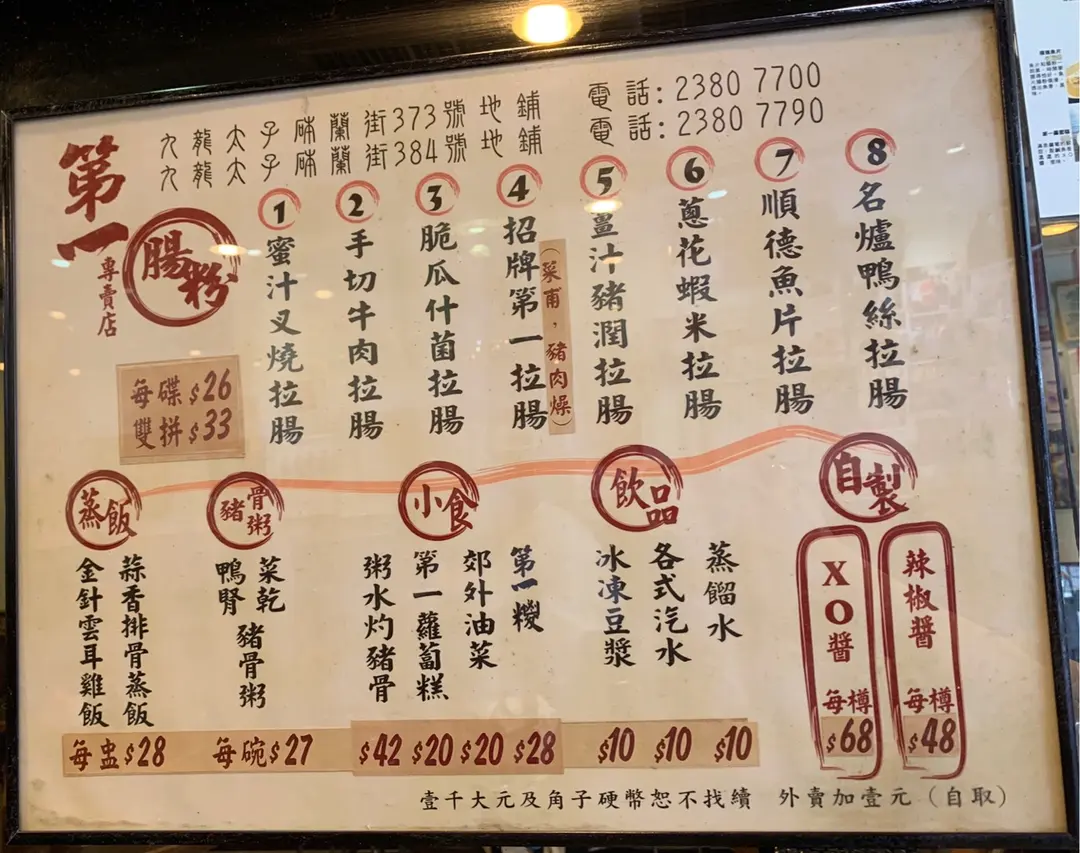 九龍太子砵蘭街373號地鋪 電話: 2380 7700
九龍太子砵蘭街384號地鋪 電話: 2380 7790
第一
腸粉
專賣店
每碟$26
雙拼$33
1 蜜汁叉燒拉腸
2 手切牛肉拉腸
3 脆瓜什菌拉腸
4 招牌第一拉腸
(菜甫，豬肉燥)
5 薑汁豬潤拉腸
6 蔥花蝦米拉腸
7 順德魚片拉腸
8 名爐鴨絲拉腸
蒸飯
金針雲耳雞飯
蒜香排骨蒸飯
每盅$28
豬骨粥
鴨腎
菜乾
豬骨粥
每碗$27
小食
粥水灼豬骨
$42
第一蘿蔔糕
$20
郊外油菜
$20
第一糉
$28
飲品
冰凍豆漿
$10
各式汽水
$10
蒸餾水
$10
自製
XO醬
每樽
$68
辣椒醬
每樽
$48
壹千大元及角子硬幣恕不找續 外賣加壹元(自取)